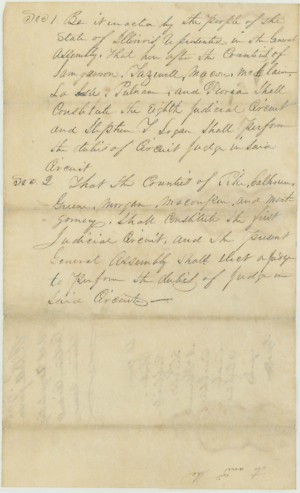 Sec 1 Be it enacted by the people of the
State of Illinois represented in the General
Assembly, That hereafter the Counties of
Sangamon, Tazewell, Macon, McClain
La Salle, Putnam, and Peoria Shall
Constitute the Eighth Judicial Circuit
and Stephen T Logan Shall perform
the duties of Circuit Judge in said
Circuit
Sec. 2 That the Counties of Pike, Calhoun,
Greene, Morgan, Macoupin, and mont
gomery, Shall Constitute the first
Judicial Circuit, and the present
General Assembly Shall elect a Judge
to perform the duties of Judge in
said Circuit